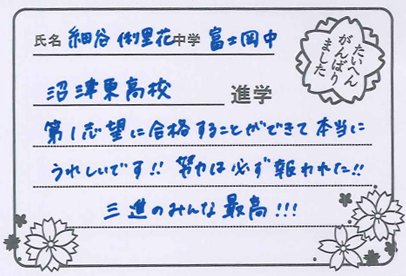 氏名 細谷 俐里花 中学 富士岡中
たいへん
がんばり
ました
沼津東高校 進学
第1志望に合格することができて本当に
うれしいです!! 努力は必ず報われた!!
三進のみんな最高!!!